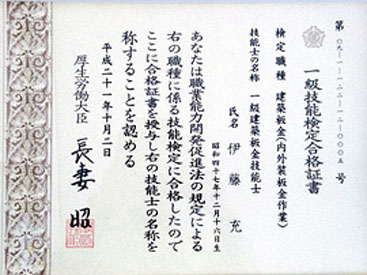 第〇九-一-一二二-一二-〇〇〇五号
一級技能検定合格証書
検定職種 建築板金(内外装板金作業)
技能士の名称 一級建築板金技能士
氏名 伊藤 充
昭和四十七年十二月十六日生
あなたは職業能力開発促進法の規定による
右の職種に係る技能検定に合格したので
ここに合格証書を授与し右の技能士の名称を
称することを認める
平成二十一年十月二日
厚生労働大臣 長妻 昭